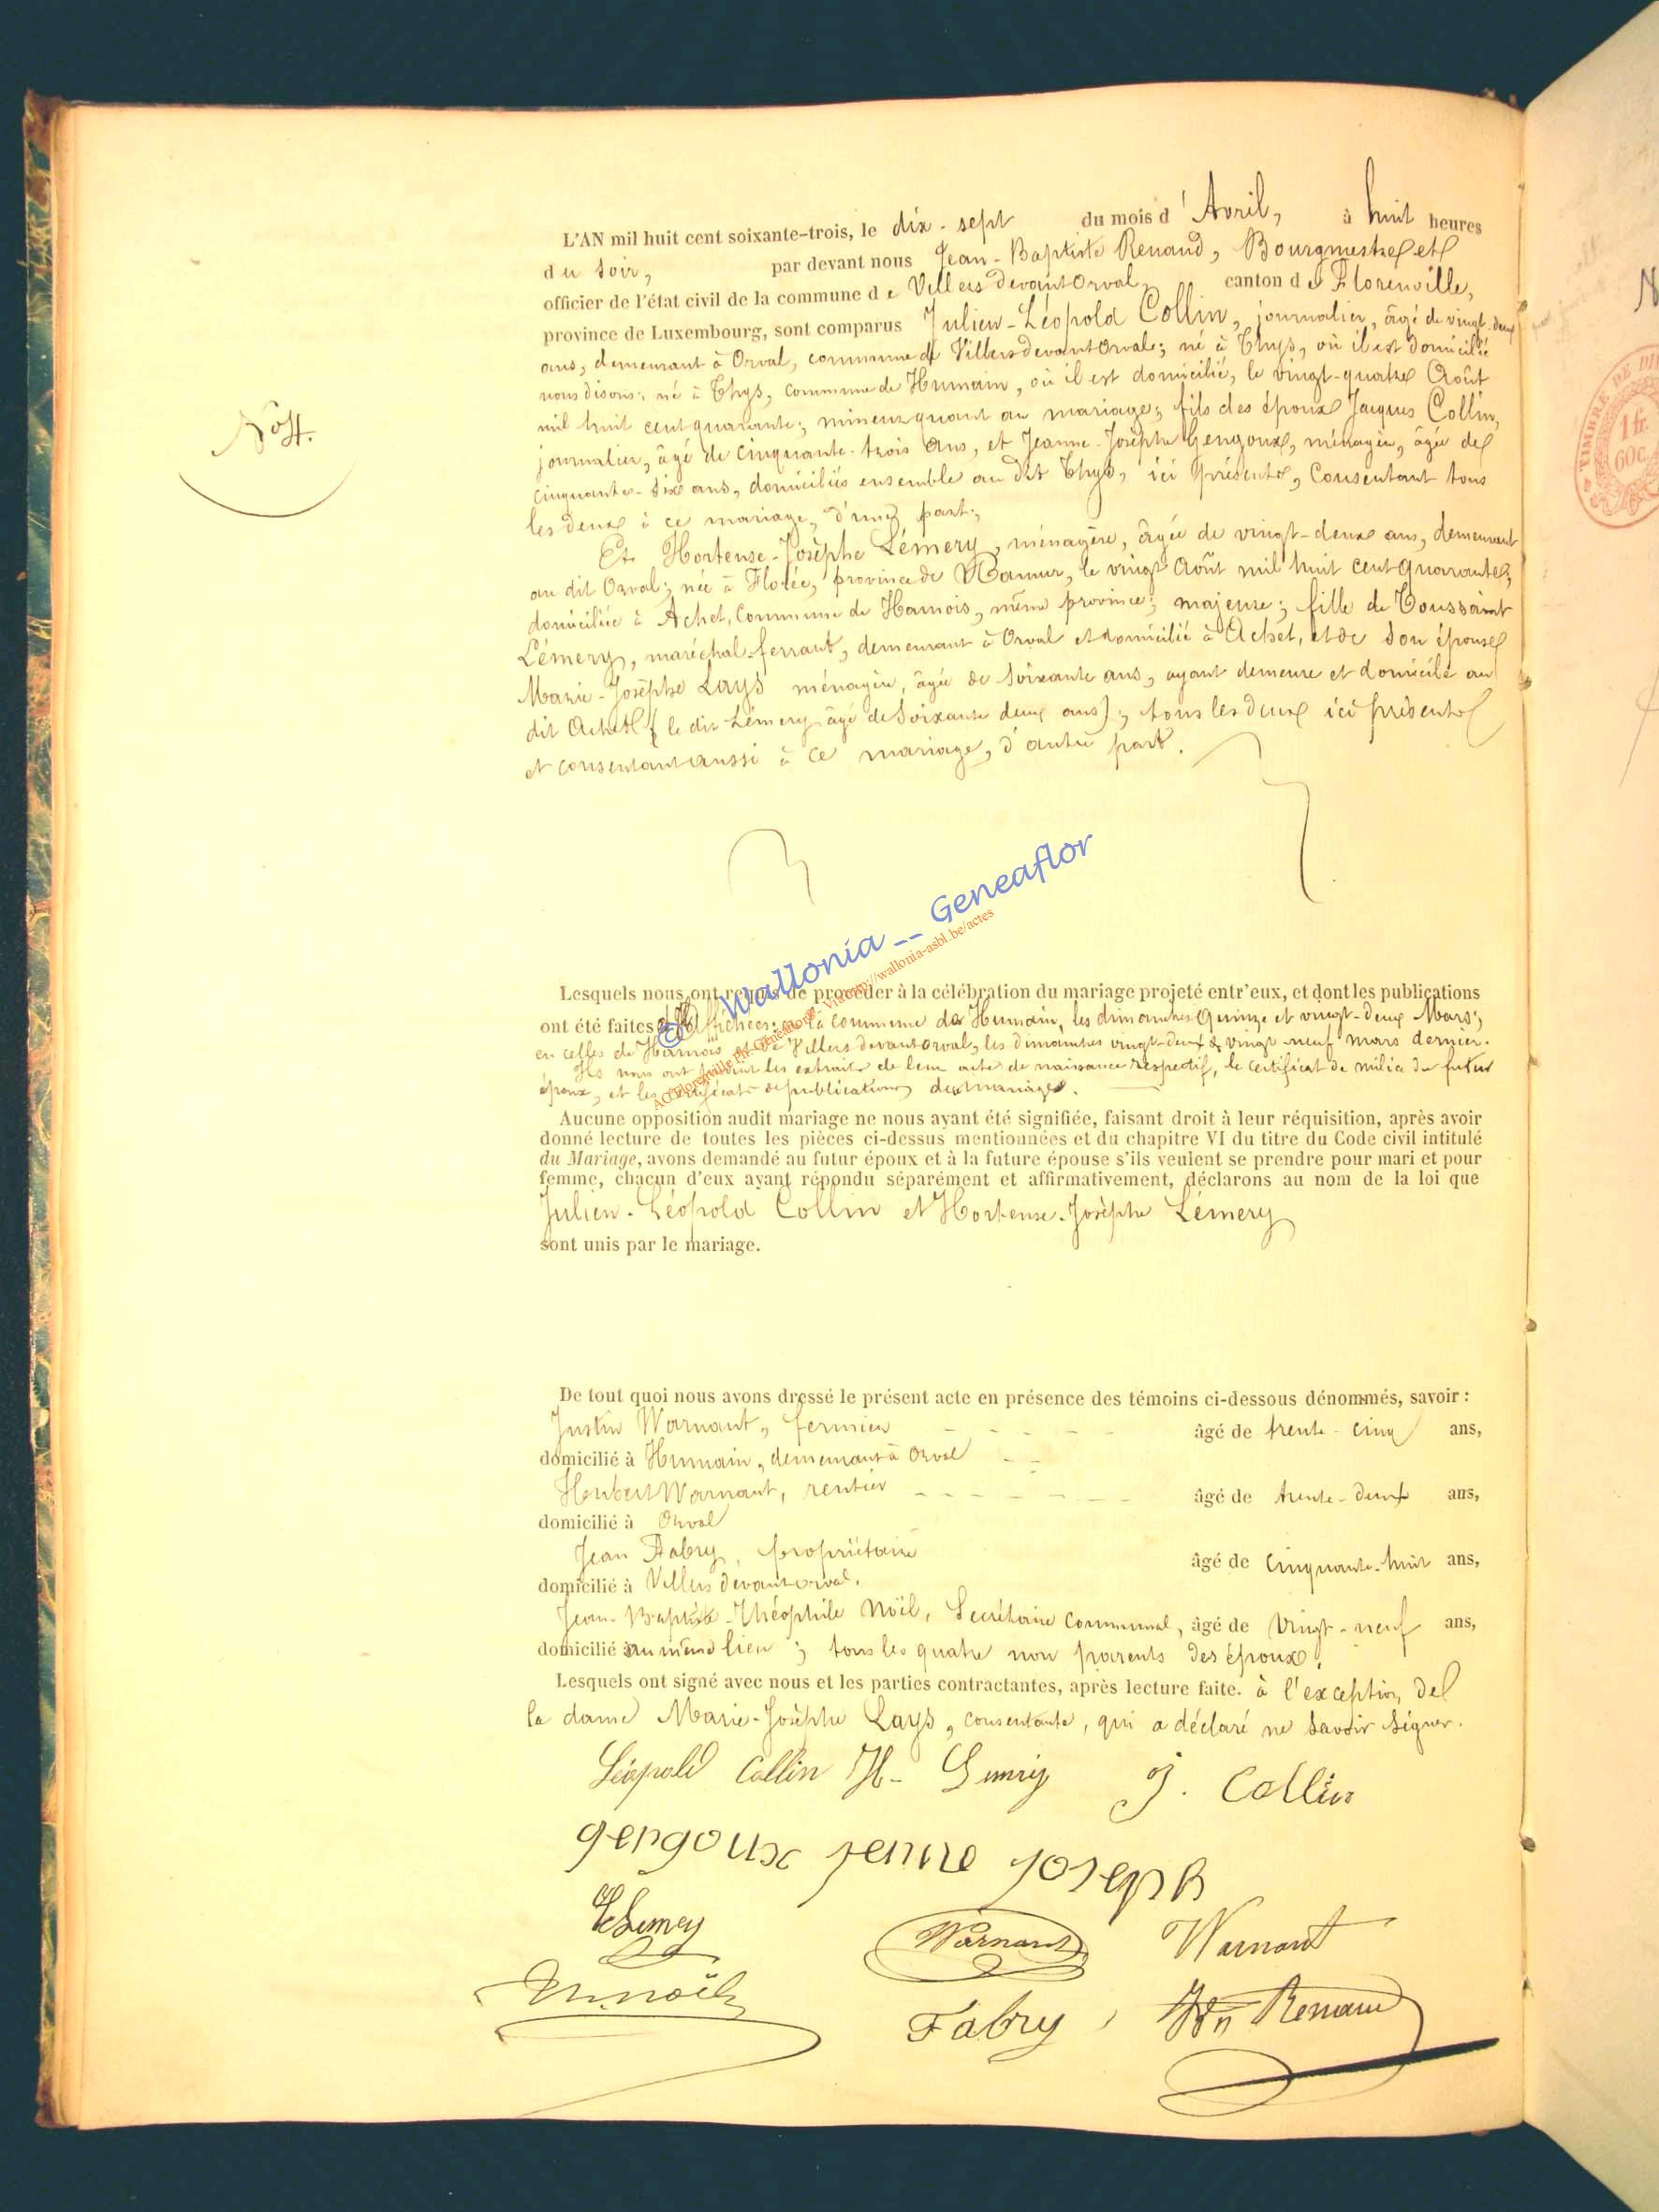 N° 4.
L'AN mil huit cent soixante-trois, le dix-sept du mois d'Avril, à huit heures
du soir, par devant nous Jean-Baptiste Renaud, Bourgmestre et
officier de l'état civil de la commune de Villers devant Orval, canton de Florenville,
province de Luxembourg, sont comparus Julien-Léopold Collin, journalier, âgé de vingt-deux
ans, demeurant à Orval, commune de Villers devant Orval; né à Thys, où il est domicilié
nous disons: né à Thys, commune de Humain, où il est domicilié, le vingt-quatre Août
mil huit cent quarante; mineur quant au mariage; fils des époux Jacques Collin,
journalier, âgé de cinquante-trois ans, et Jeanne-Josèphe Gengoux, ménagère, âgée de
cinquante-six ans, domiciliés ensemble au dit Thys, ici présents, Consentant tous
les deux à ce mariage, d'une part;
Et Hortense-Josèphe Lémery, ménagère, âgée de vingt-deux ans, demeurant
au dit Orval; née à Flotée, province de Namur, le vingt Août mil huit cent quarante;
domiciliée à Achet, Commune de Hamois, même province; majeure; fille de Toussaint
Lémery, maréchal-ferrant, demeurant à Orval et domicilié à Achet, et de son épouse
Marie-Josèphe Lays ménagère, âgée de soixante ans, ayant demeure et domicile au
dit Achet (le dit Lémery âgé de soixante deux ans); tous les deux ici présents
et consentant aussi à ce mariage, d'autre part.
Lesquels nous ont requis de procéder à la célébration du mariage projeté entr'eux, et dont les publications
ont été faites et affichées: la commune de Humain, les dimanches Quinze et vingt-deux Mars;
en celles de Hamois et de Villers devant Orval, les dimanches vingt-deux & vingt neuf mars dernier.
Ils nous ont fourni les extraits de leur acte de naissance respectif, le certificat de milice du futur
époux, et les certificats de publications de mariage.
Aucune opposition audit mariage ne nous ayant été signifiée, faisant droit à leur réquisition, après avoir
donné lecture de toutes les pièces ci-dessus mentionnées et du chapitre VI du titre du Code civil intitulé
du Mariage, avons demandé au futur époux et à la future épouse s'ils veulent se prendre pour mari et pour
femme, chacun d'eux ayant répondu séparément et affirmativement, déclarons au nom de la loi que
Julien-Léopold Collin et Hortense-Josèphe Lémery
sont unis par le mariage.
De tout quoi nous avons dressé le présent acte en présence des témoins ci-dessous dénommés, savoir :
Justin Warnant, fermier âgé de trente-cinq ans,
domicilié à Humain, demeurant à Orval
Hubert Warnant, rentier âgé de trente-deux ans,
domicilié à Orval
Jean Fabry, propriétaire âgé de cinquante-huit ans,
domicilié à Villers devant orval.
Jean-Baptiste-Théophile Noël, Secrétaire Communal, âgé de vingt-neuf ans,
domicilié au même lieu ; tous les quatre non parents des époux.
Lesquels ont signé avec nous et les parties contractantes, après lecture faite. à l'exception de
la dame Marie-Josèphe Lays, consentante, qui a déclaré ne savoir signer.
Léopold Collin H. Lemery J. Collin
gengoux jenne joseph
Lemery Warnant Warnant
Noël Fabry Renaud
© Wallonia __ Geneaflor
http://wallonia-asbl.be/actes
TIMBRE DE DI
1 fr.
60c.